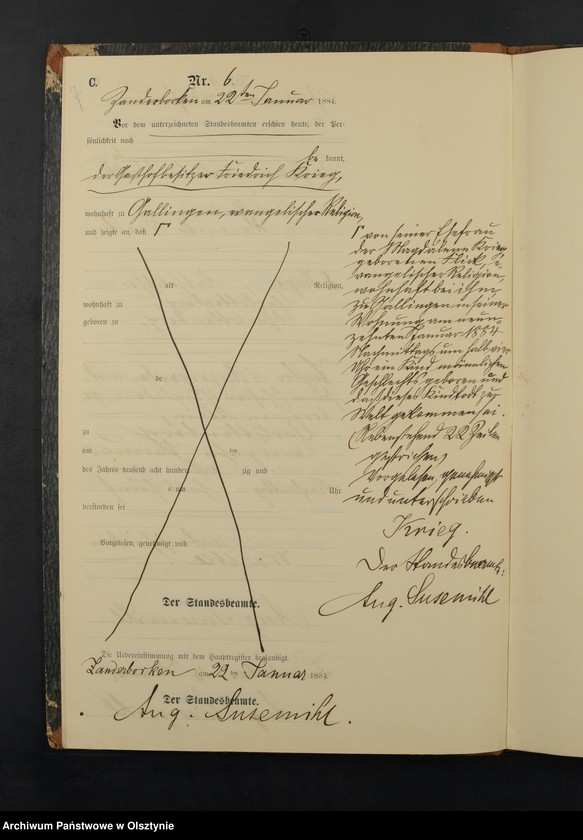 C.
Nr. 6.
Zanderborken am 22ten Januar 1884.
Vor dem unterzeichneten Standesbeamten erschien heute, der Per-
sönlichkeit nach
be kannt,
der Gasthofbesitzer Friedrich Krieg,
wohnhaft zu Gallingen, evangelischer Religion,
und zeigte an, daß Γ
Γ von seiner Ehefrau
der Magdalena Krieg
geborenen Flick, e-
vangelischer Religion,
wohnhaft bei ihm
zu Gallingen in seiner
Wohnung am neun-
zehnten Januar 1884
Nachmittags um halb vier
Uhr ein Kind männlichen
Geschlechts geboren und
daß dieses Kind todt zur
Welt gekommen sei.
(Nebenstehend 22 Zeilen
gestrichen)
Vorgelesen, genehmigt
und unterschrieben
Krieg.
Der Standesbeamte:
Aug. Susemihl
alt Religion,
wohnhaft zu
geboren zu
de
zu
am ten
des Jahres tausend acht hundert zig und
um Uhr
verstorben sei
Vorgelesen, genehmigt und
Der Standesbeamte.
Die Uebereinstimmung mit dem Hauptregister beglaubigt.
Zanderborken am 22 ten Januar 1884.
Der Standesbeamte.
Aug. Susemihl.
Archiwum Państwowe w Olsztynie